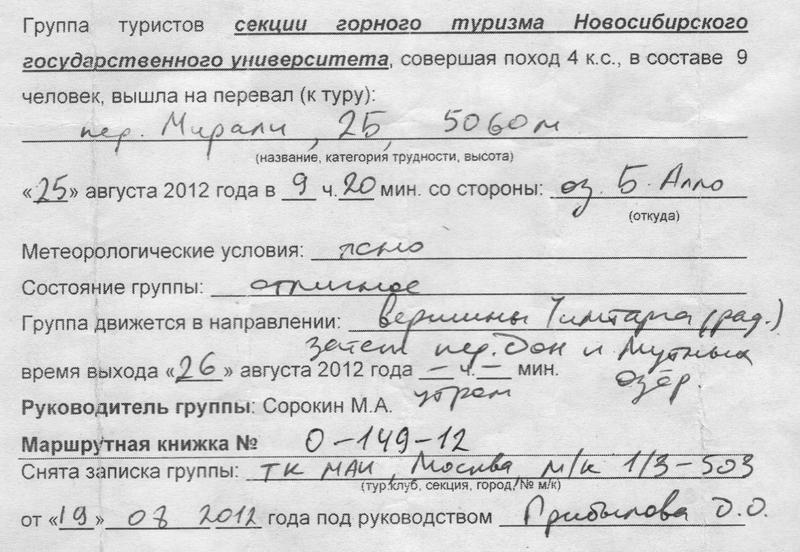 Группа туристов секции горного туризма Новосибирского
государственного университета, совершая поход 4 к.с., в составе 9
человек, вышла на перевал (к туру):
пер. Мирали, 2Б, 5060м
(название, категория трудности, высота)
«25» августа 2012 года в 9 ч. 20 мин. со стороны: оз. Б. Алло
(откуда)
Метеорологические условия: ясно
Состояние группы: отличное
Группа движется в направлении: вершины Чимтарга (рад.)
затем пер. Дон и Мутных
время выхода «26» августа 2012 года – ч. – мин. озёр.
Руководитель группы: Сорокин М.А. утром
Маршрутная книжка № 0-149-12
Снята записка группы: ТК МАИ, Москва, м/к 1/3-503
(тур.клуб, секция, город, № м/к)
от «19» 08 2012 года под руководством Прибылова Д.О.